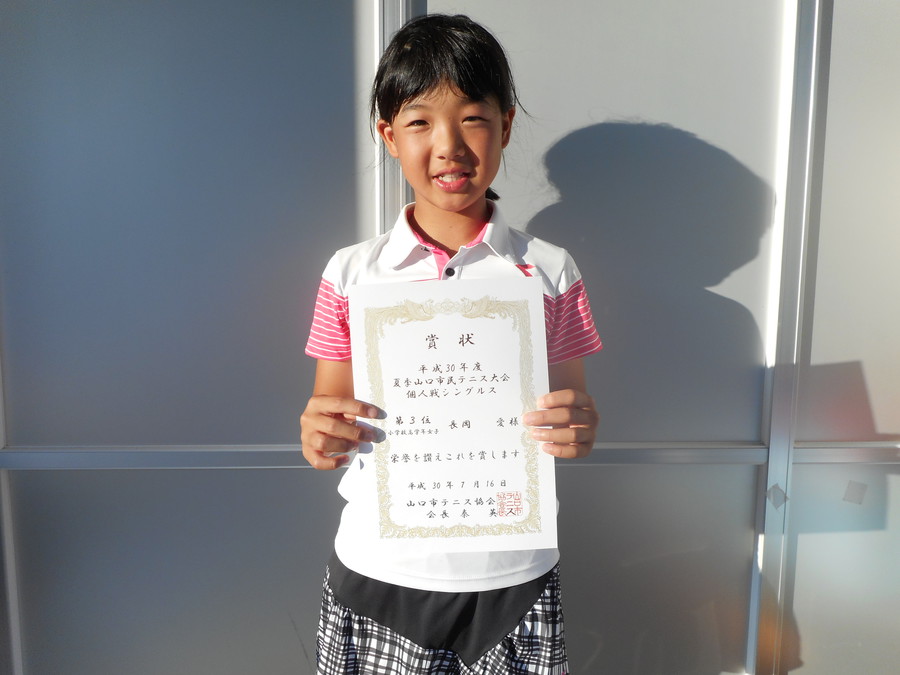 賞 状
平成30年度
夏季山口市民テニス大会
個人戦シングルス
第3位 長岡 愛様
小学校高学年女子
栄誉を讃えこれを賞します
平成30年7月16日
山口市テニス協会
会長 秦 英